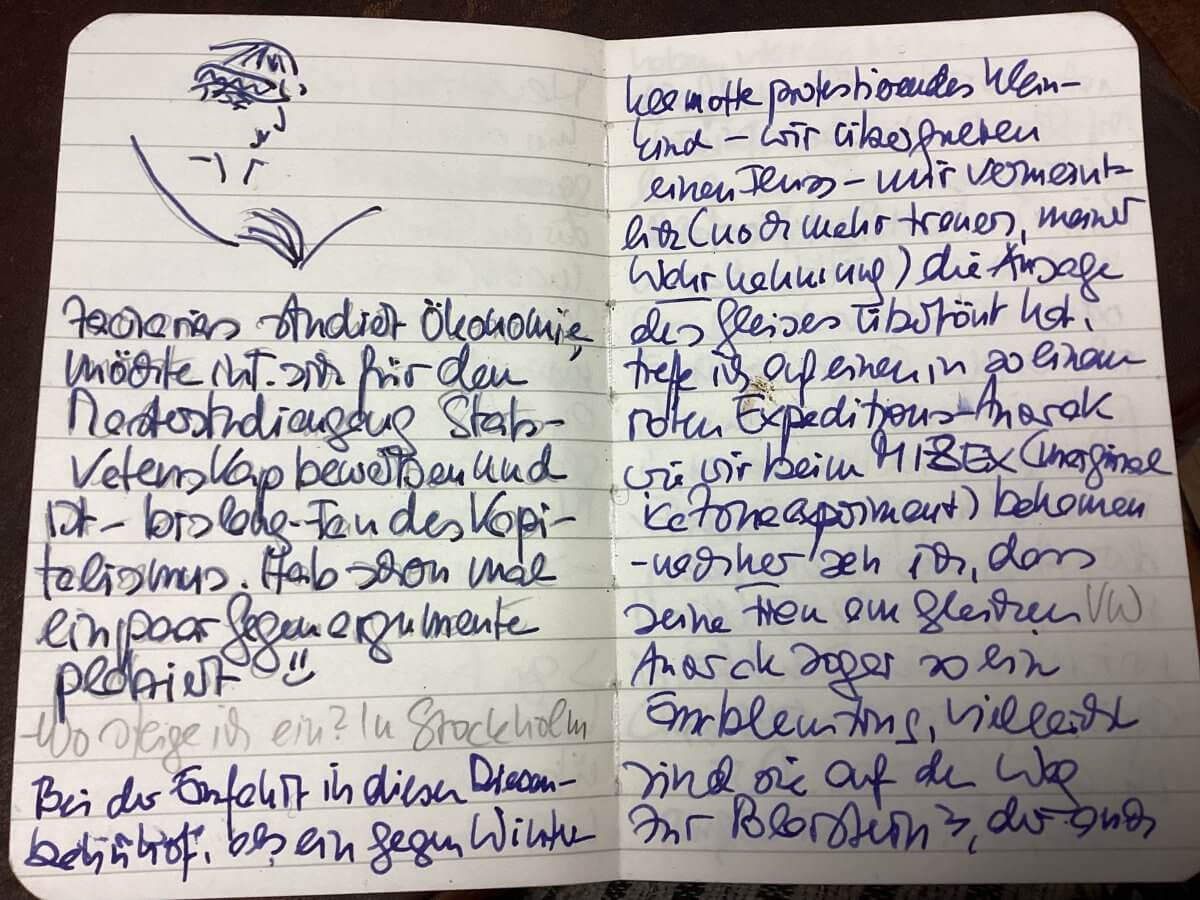 studiert Ökonomie,
möchte int. sich für den
Masterstudiengang Stats-
vetenskap bewerben und
ist – bislang – Fan des Kapi-
talismus. Hab schon mal
ein paar Gegenargumente
platziert
– Wo steige ich ein? In Stockholm
Bei der Einfahrt in diesen Riesen-
bahnhof, als ein gegen Winter
protestierendes Klein-
kind – wir
einen – mir vermeint-
lich (noch mehr meiner
Wahrnehmung) die Ansage
des Gleises übertönt hat,
treffe ich auf einen in so einem
roten Expeditions-Anorak
wie wir beim MIZEX (marginal
icezone experiment) bekamen
– nachher seh ich, dass
seine Frau am gleichen VW
Anorak sogar so ein
Emblem trug, vielleicht
sind sie auf dem Weg
zur der auch